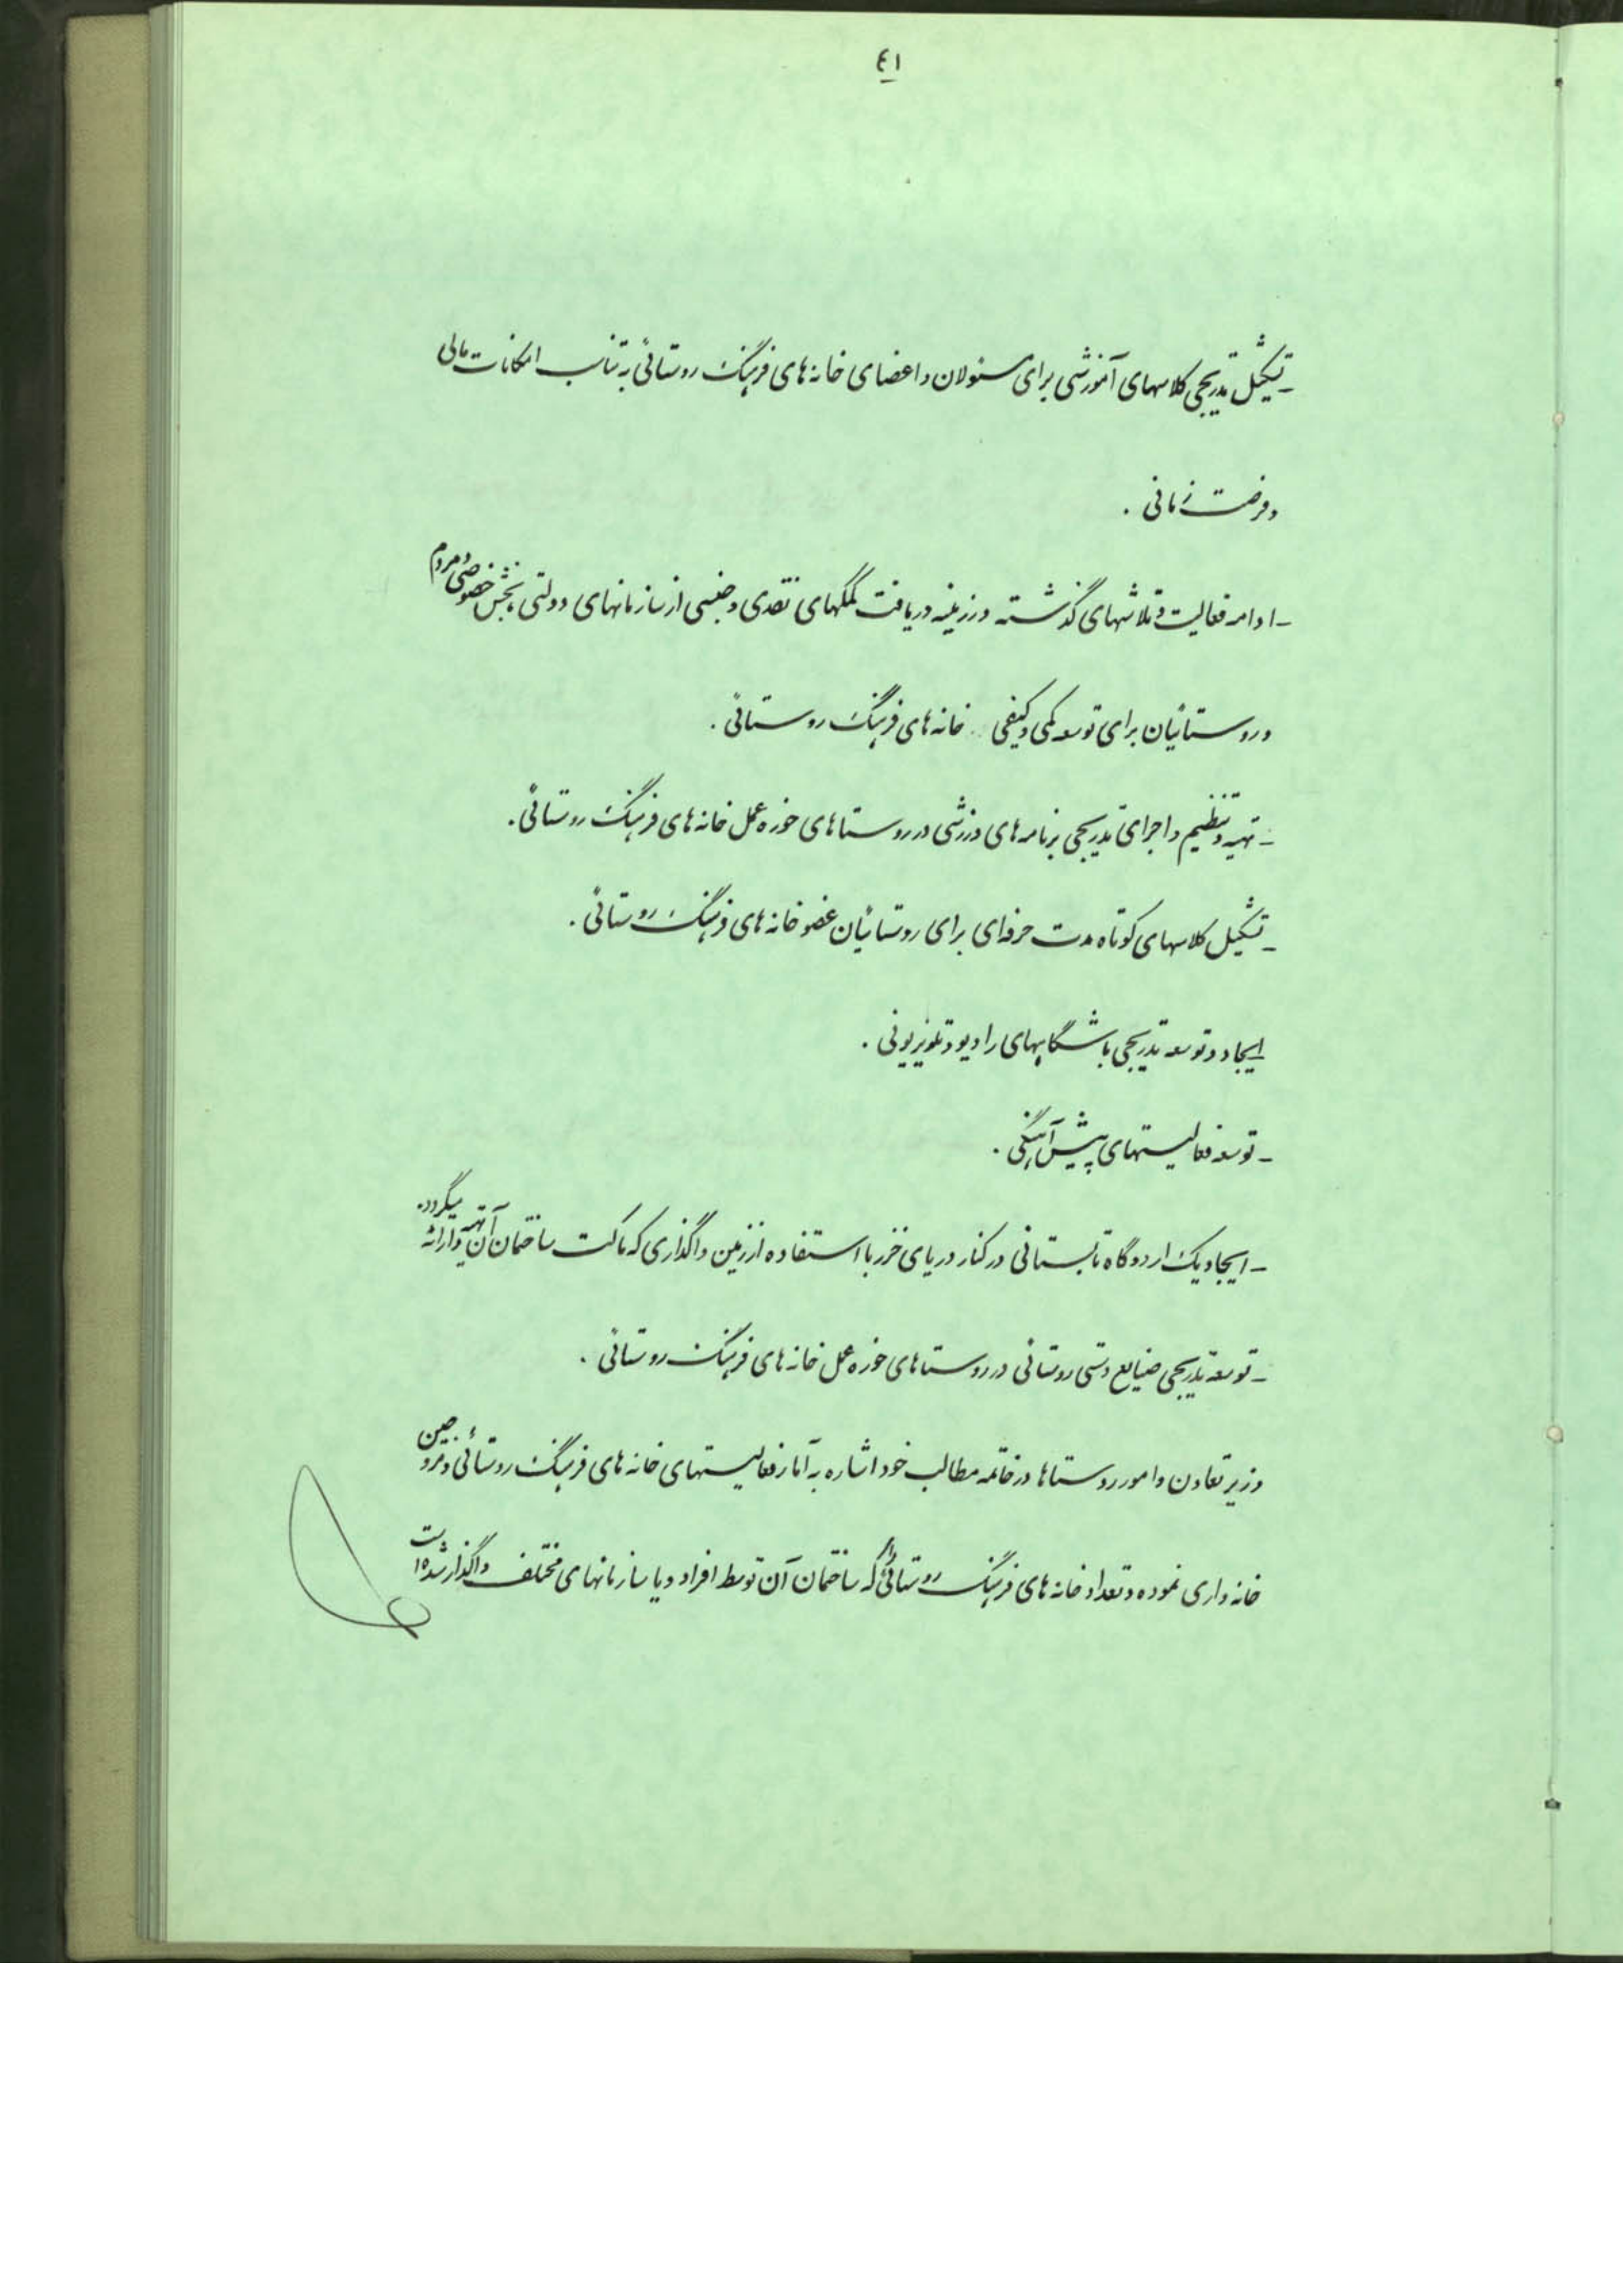 ٤١
- تشکیل تدریجی کلاسهای آموزشی برای مسئولان و اعضای خانه های فرهنگ روستائی به تناسب امکانات مالی
و فرصت زمانی .
- ادامه فعالیت و تلاشهای گذشته در زمینه دریافت کمکهای نقدی و جنسی از سازمانهای دولتی بخش خصوصی و مردم
و روستائیان برای توسعه کمی و کیفی خانه های فرهنگ روستائی .
- تهیه و تنظیم و اجرای تدریجی برنامه های ورزشی در روستاهای حوزه عمل خانه های فرهنگ روستائی .
- تشکیل کلاسهای کوتاه مدت حرفه‌ای برای روستائیان عضو خانه های فرهنگ روستائی .
ایجاد و توسعه تدریجی باشگاههای رادیو و تلویزیونی .
- توسعه فعالیتهای پیش آهنگی .
- ایجاد یک اردوگاه تابستانی در کنار دریای خزر با استفاده از زمین واگذاری که ماکت ساختمان آن تهیه و ارائه میگردد.
- توسعه تدریجی صنایع دستی روستائی در روستاهای حوزه عمل خانه های فرهنگ روستائی .
وزیر تعاون و امور روستاها در خاتمه مطالب خود اشاره به آمار فعالیتهای خانه های فرهنگ روستائی و مروجین
خانه داری نموده و تعداد خانه های فرهنگ روستائی که ساختمان آن توسط افراد و یا سازمانهای مختلف واگذار شده است